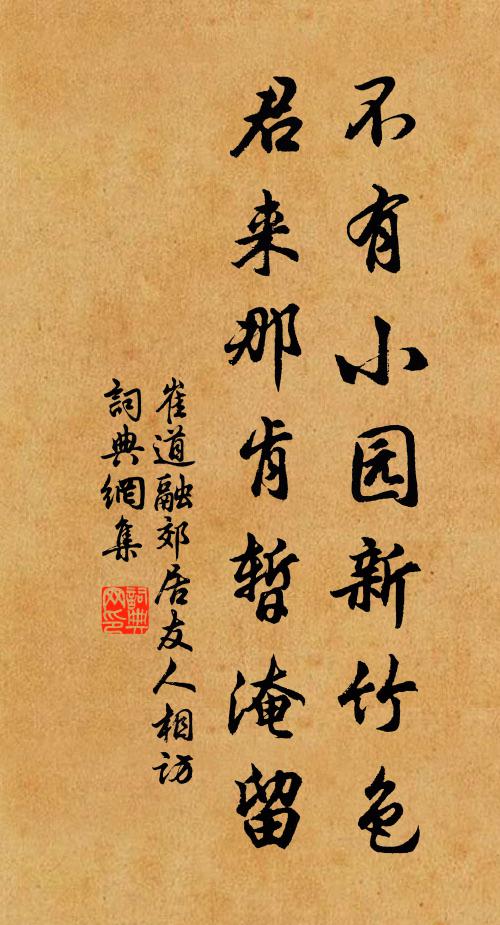 不有小园新竹色
君来那肯暂淹留
崔道融郊居友人相访
詞典網集
詞典
网印